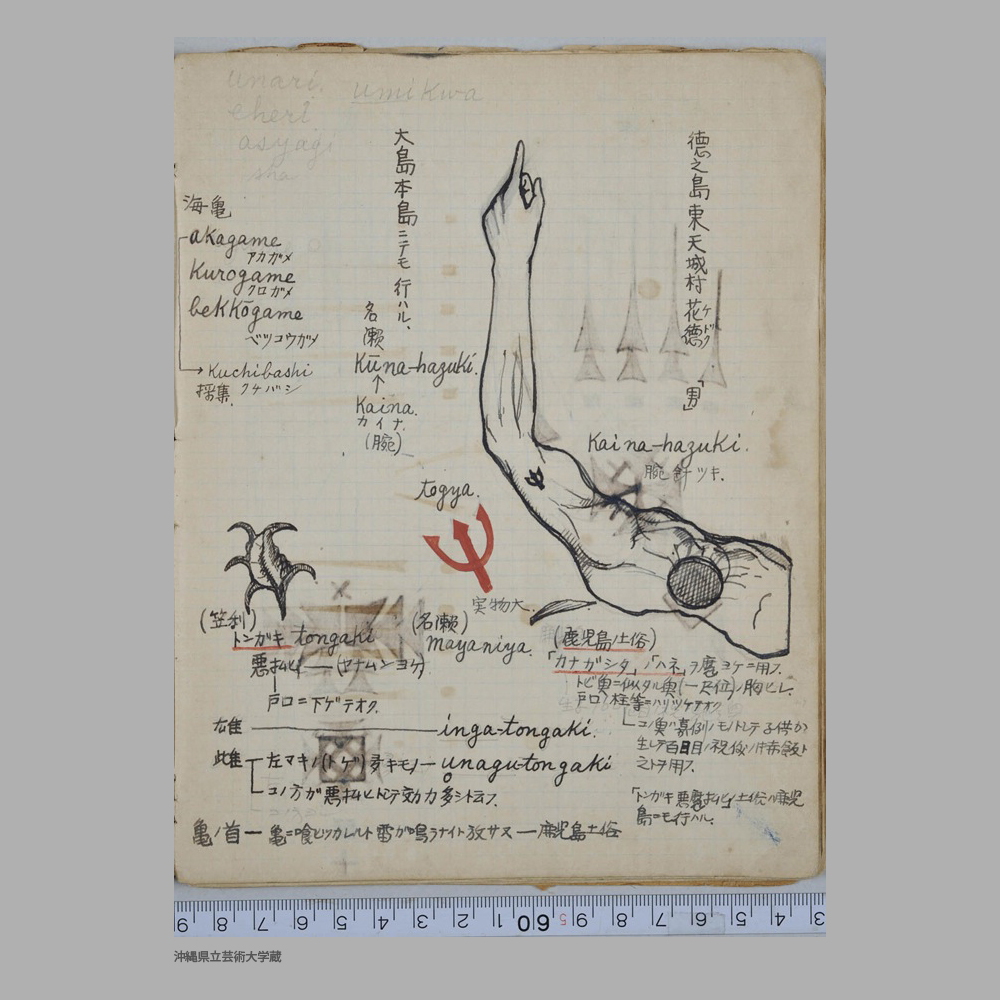 unari. umikwa
eheri
asyagi
sha
海亀
akagame
アカガメ
kurogame
クロガメ
bekkōgame
ベツコウガメ
kuchibashi
採集 クチバシ
大島本島ニテモ行ハル、
名瀬
Kūna-hazuki.
↑
Kaina.
カイナ.
(腕)
徳之島東天城村花徳
ケドク
「男」
Kaina-hazuki.
腕針ツキ.
togya.
実物大.
(笠利)
トンガキ tongaki
悪払ヒ―(ヤナムンヨケ)
戸口ニ下ゲテオク.
(名瀬)
mayaniya.
(鹿児島土俗)
「カナガシタ」ノ「ハネ」ヲ魔ヨケニ用フ.
トビ魚ニ似タル魚(一尺位)ノ胸ヒレ.
戸口ノ柱等ニハリツケテオク
コノ魚ハ嘉例ノモノトシテ子供ガ
生レテ百日目ノ祝儀ノ時赤飯ト
之トヲ用フ.
雄 ― inga-tongaki.
雌 左マキノ(トゲ)多キモノ― unagu-tongaki
コノ方ガ悪払ヒトシテ効力多シト云フ.
「トンガキ悪払ヒ」土俗ハ鹿児
島ニモ行ハル.
亀ノ首 ― 亀ニ喰ヒツカレルト雷ガ鳴ラナイト放サヌ ― 鹿児島土俗
9 8 7 6 5 4 3 2 1 60 5 9 8 7 6 5 4 3
沖縄県立芸術大学蔵